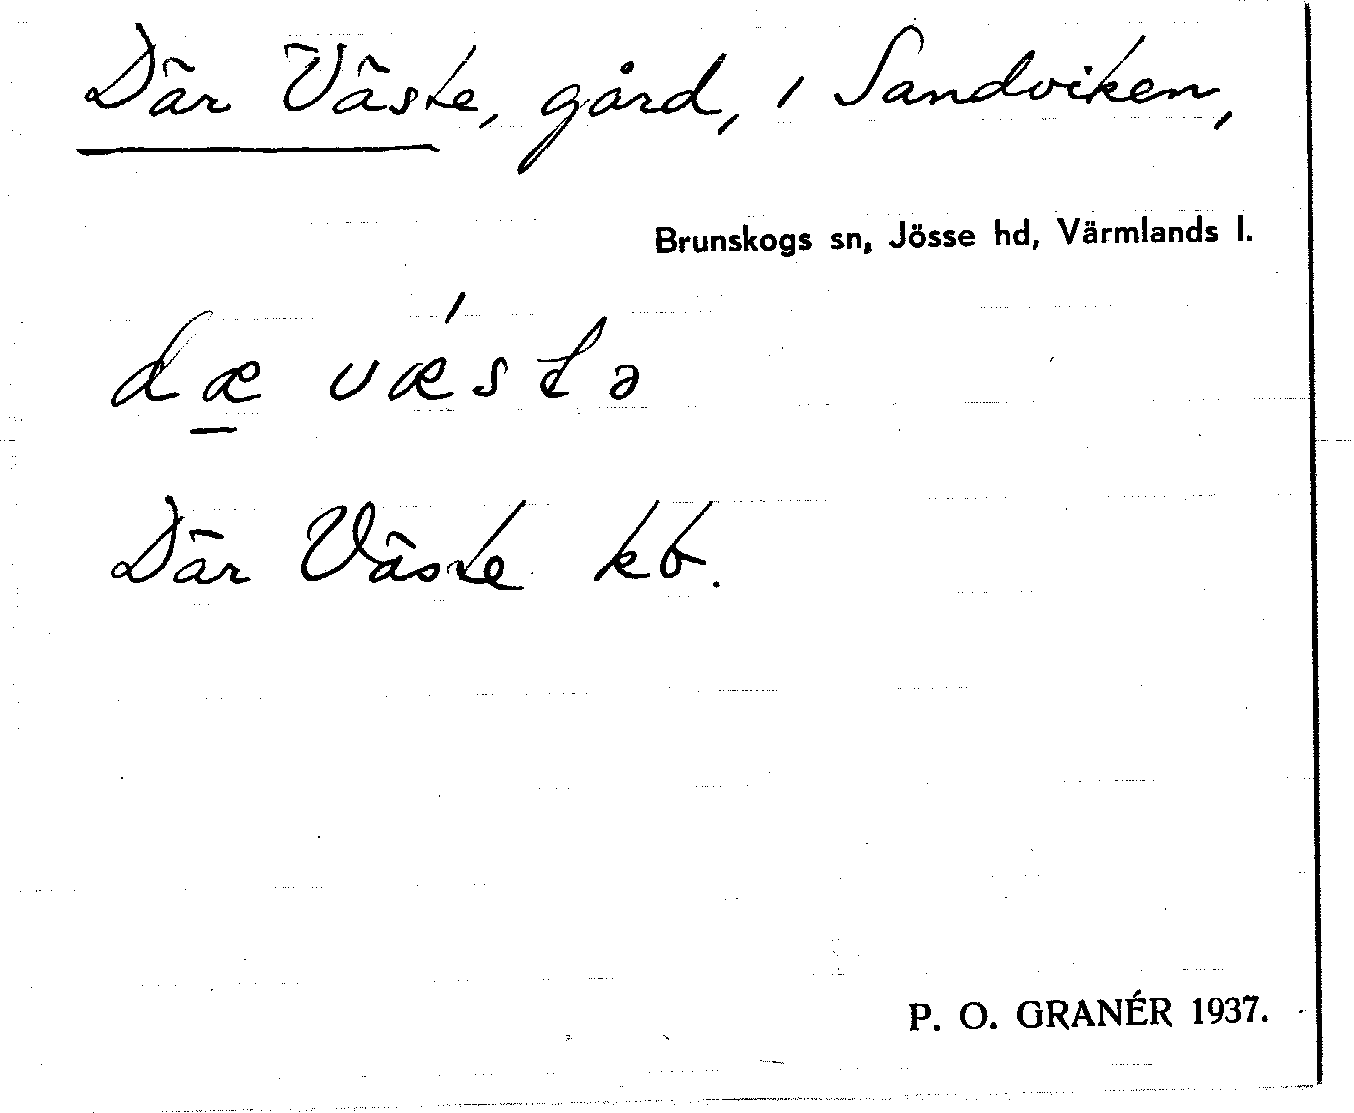 Där Väste, gård, i Sandviken,
Brunskogs sn, Jösse hd, Värmlands l.
dæ væ´stə
Där Väste kb.
P. O. GRANÉR 1937.